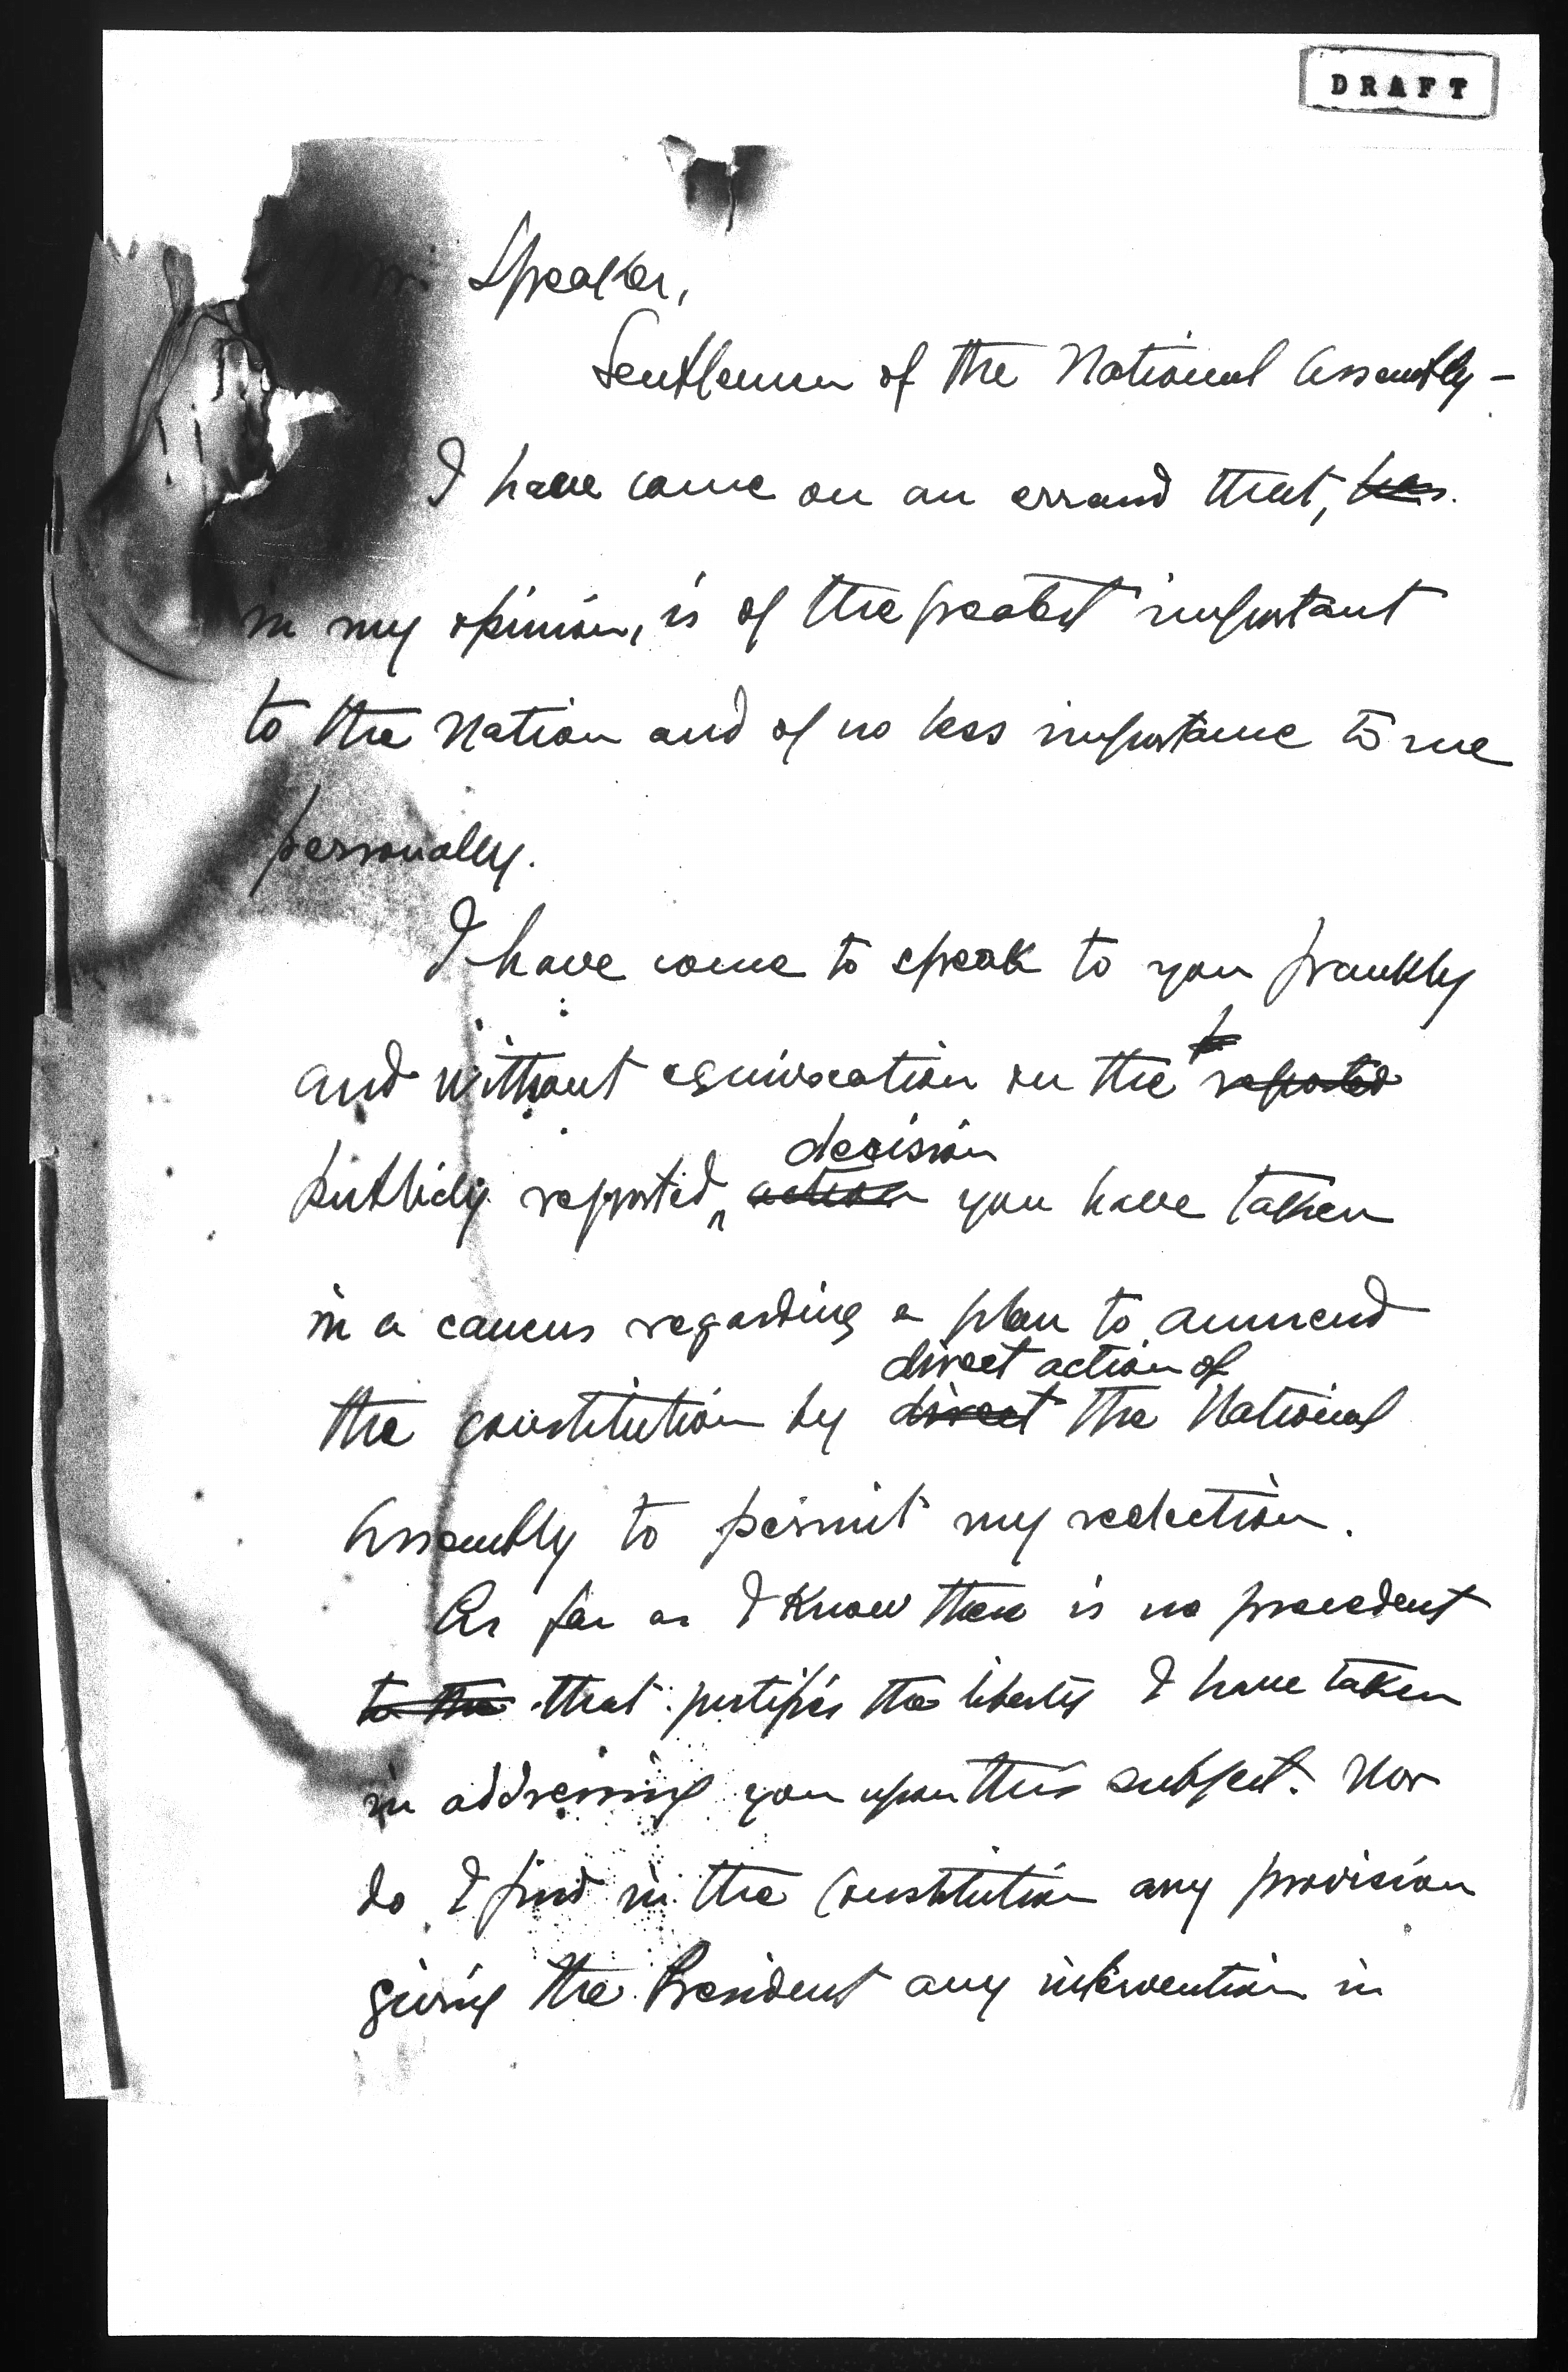 DRAFT
Mr. Speaker,
Gentlemen of the National Assembly -
I have come on an errand that, has
in my opinion, is of the greatest important
to the Nation and of no less importance to me
personally.
I have come to speak to you frankly
and without equivocation on the reported
decision
publicly reported action you have taken
in a caucus regarding a plan to ammend
direct action of
the constitution by direct the National
Assembly to permit my reelection.
As far as I know there is no precedent
to the that justifies the liberty I have taken
in addressing you upon this subject. Nor
do I find in the Constitution any provision
giving the President any intervention in